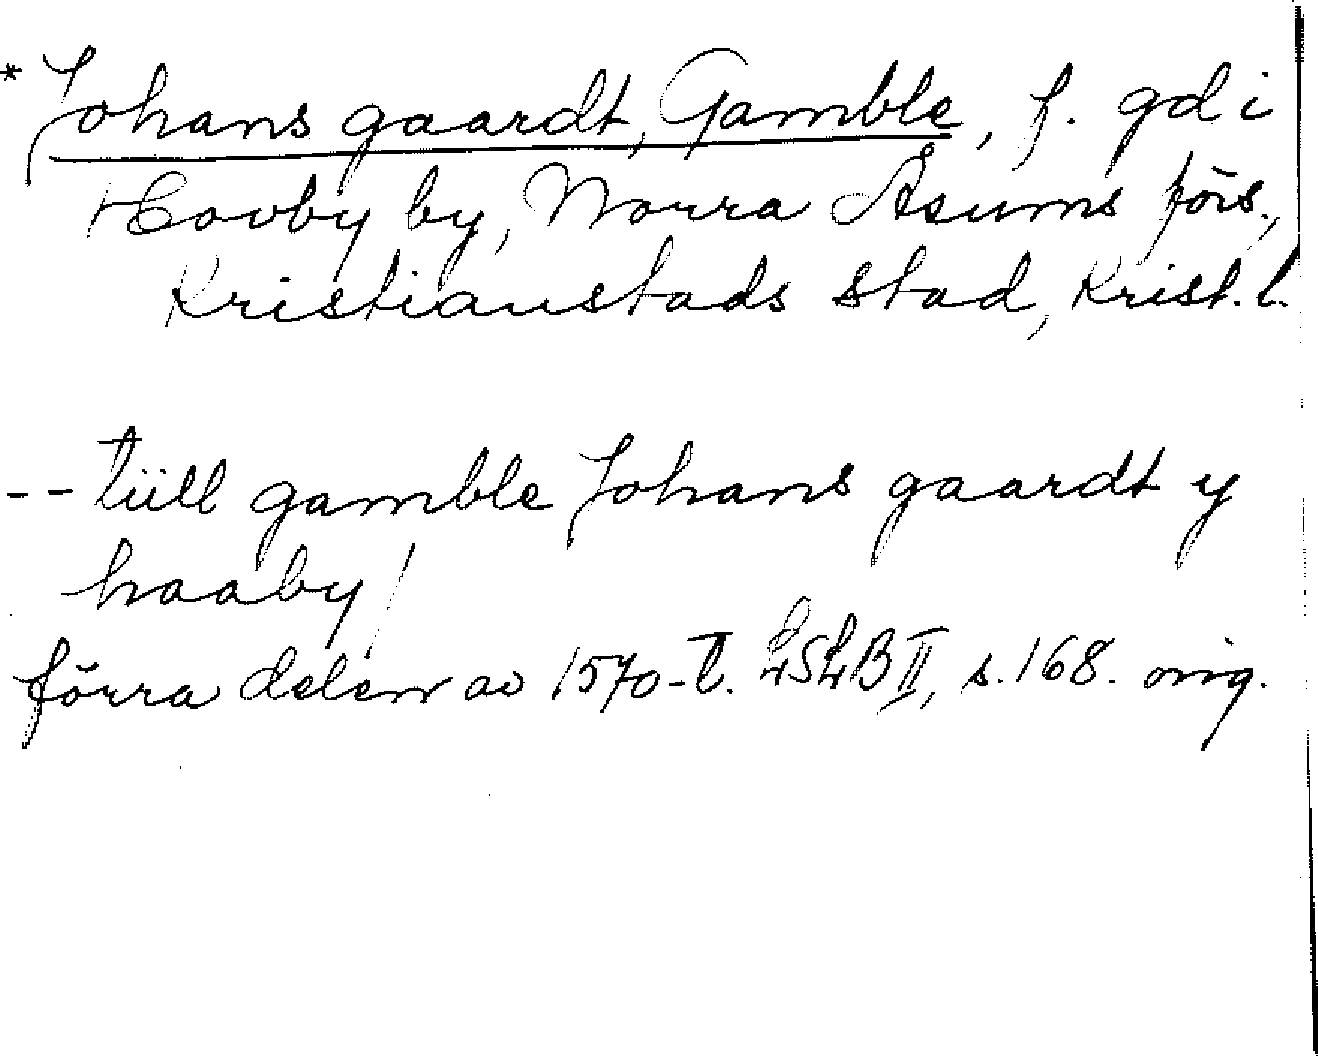 * Johans gaardt, Gamble, f. gd i
Hovby by, Norra Åsums förs.,
Kristianstads stad, Krist. l.
-- tiill gamble Johans gaardt y
haaby/
förra delen av 1570-t. LSLB II, s. 168. orig.